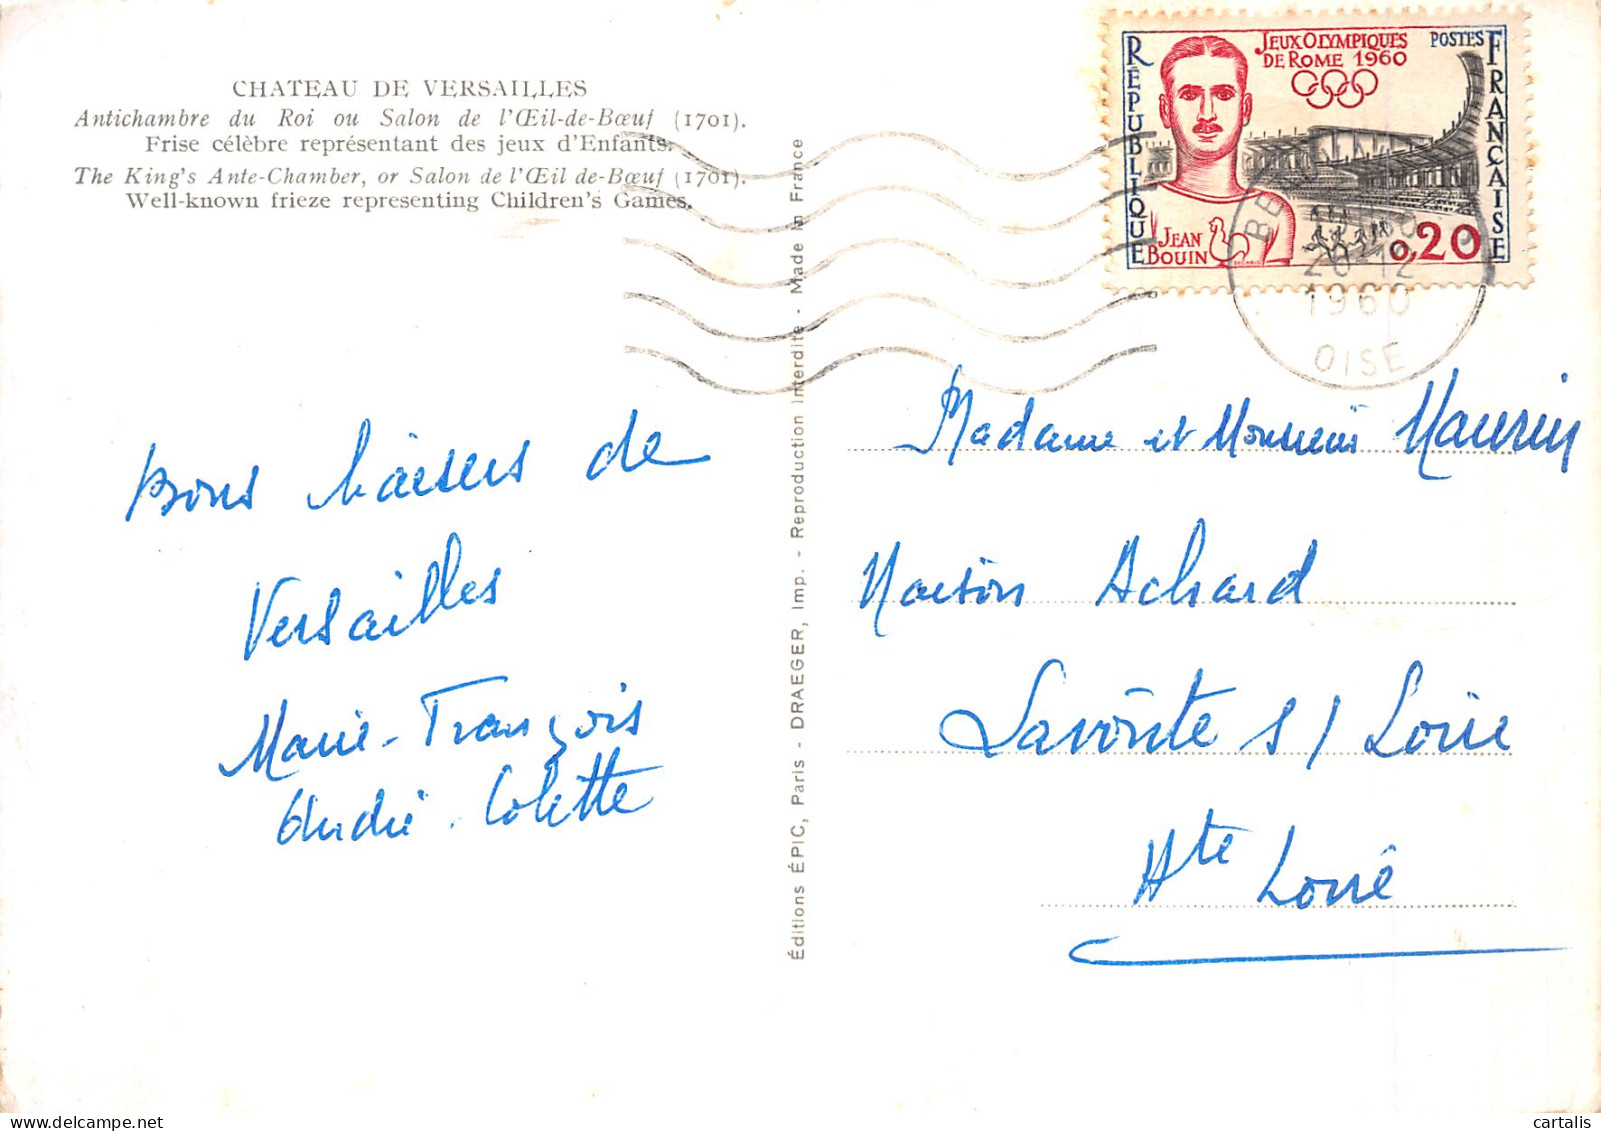 CHATEAU DE VERSAILLES
Antichambre du Roi ou Salon de l'Œil-de-Bœuf (1701).
Frise célèbre représentant des jeux d'Enfants.
The King's Ante-Chamber, or Salon de l'Œil de-Bœuf (1701).
Well-known frieze representing Children's Games.
Bons baisers de
Versailles
Marie-François
André. Colette
Éditions ÉPIC, Paris - DRAEGER, Imp. - Reproduction Interdite - Made in France
RÉPUBLIQUE
JEUX OLYMPIQUES
DE ROME 1960
POSTES
FRANÇAISE
JEAN
BOUIN
0,20
12
1960
OISE
Madame et Monsieur Maurin
Maison Achard
Lavoûte s/ Loire
Hte Loire
cartalis